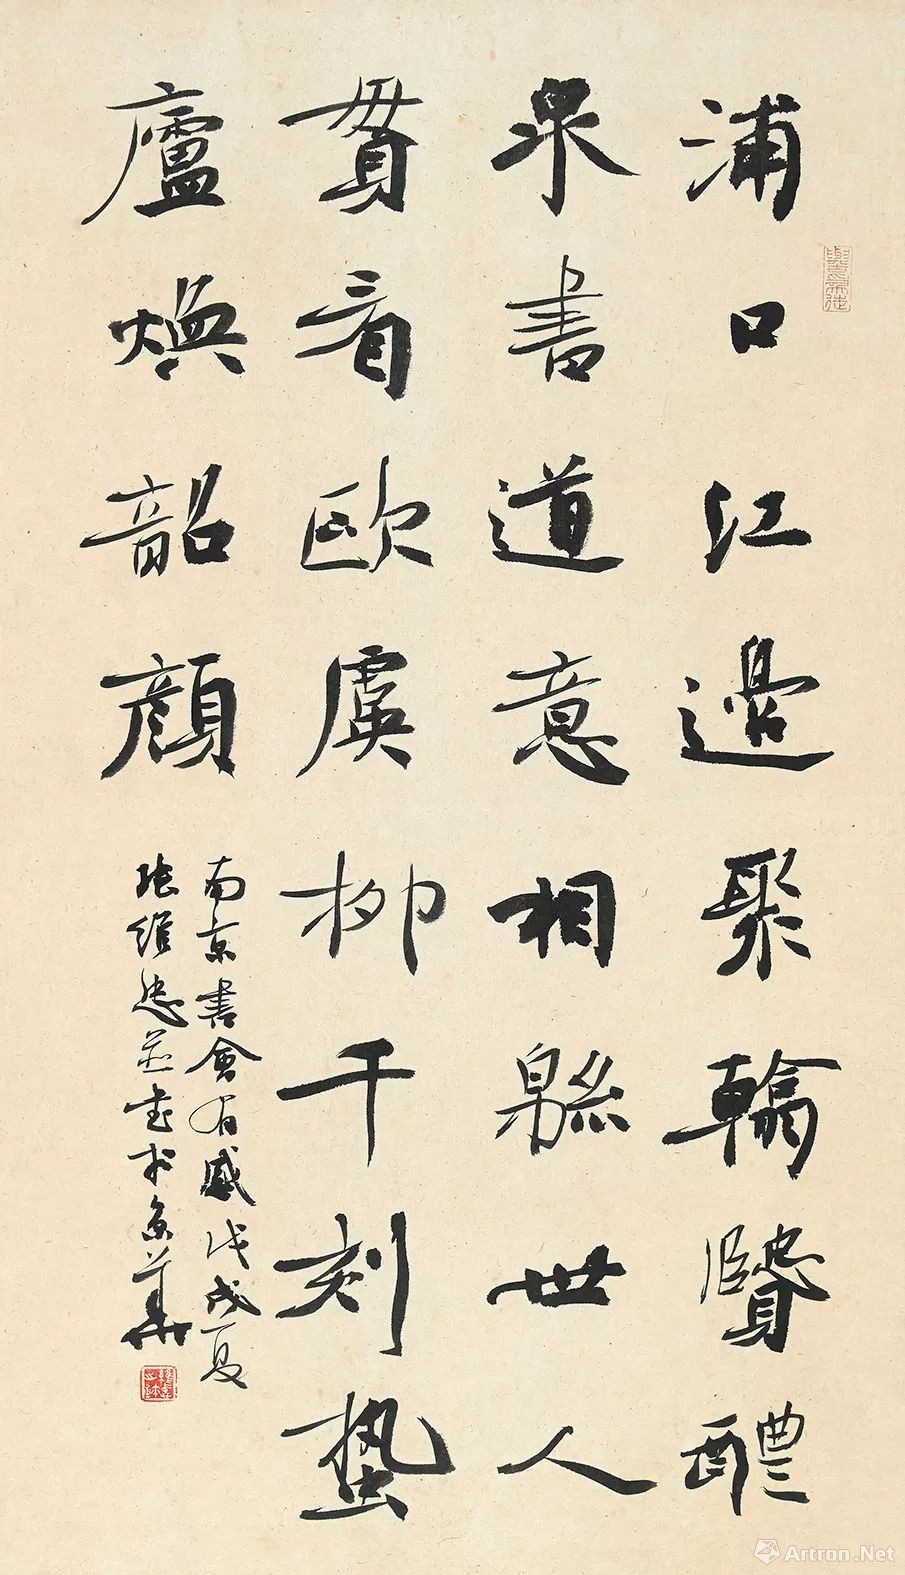 浦口江邊聚翰賢醴
泉書道意相緜世人
貫看歐虞柳千刻蟄
廬煥韶顏
南京書會有感戊戌夏
張維忠並書於京華
Artron.Net